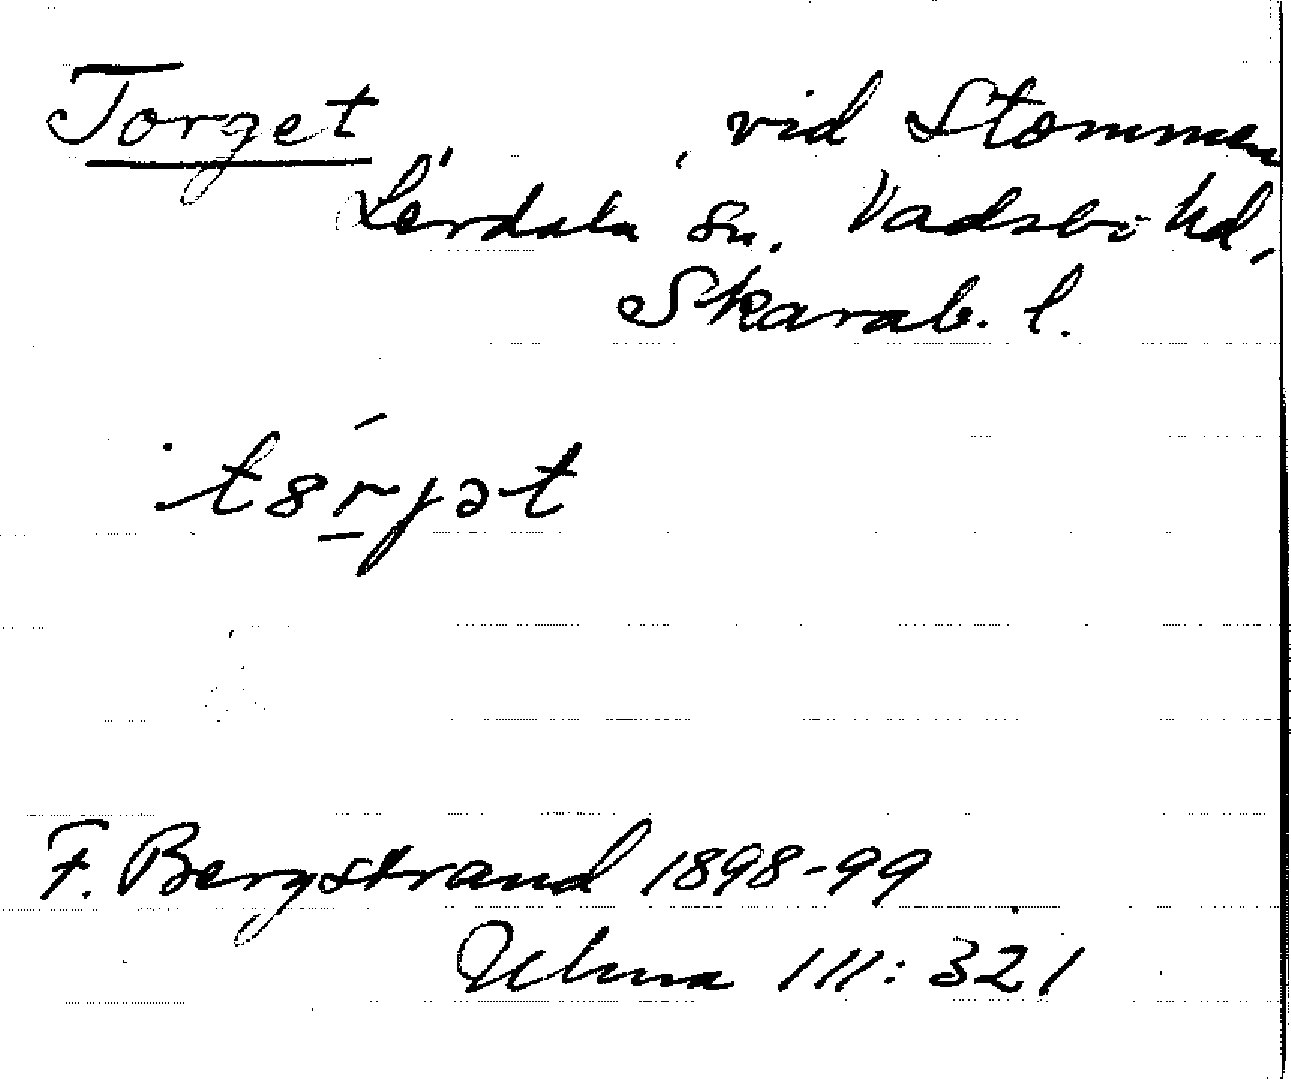 Torget, vid Stommen
Lerdala sn. Vadsbo hd,
Skarab. l.
F. Bergstrand 1898-99
Ulma 111:321